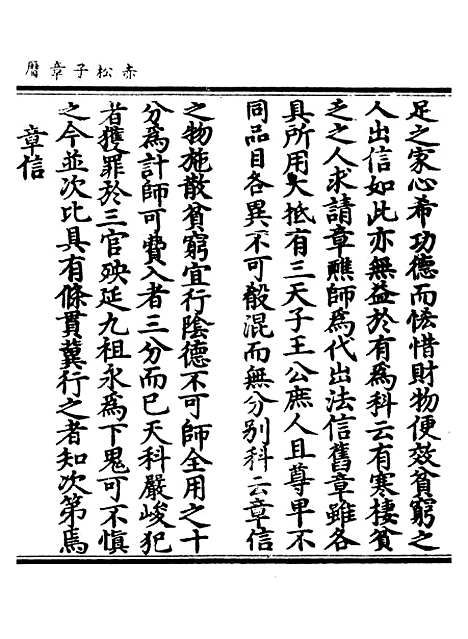 赤松子章曆
足之家心希功德而恡惜財物便效貧窮之
人出信如此亦無益於有爲科云有寒棲貧
乏之人求請章醮師爲代出法信舊章雖各
具所用大抵有三天子王公庶人且尊卑不
同品目各異不可殽混而無分別科云章信
之物施散貧窮宜行陰德不可師全用之十
分爲計師可費入者三分而已天科嚴峻犯
者獲罪於三官殃延九祖永爲下鬼可不慎
之今並次比具有條貫冀行之者知次第焉
章信